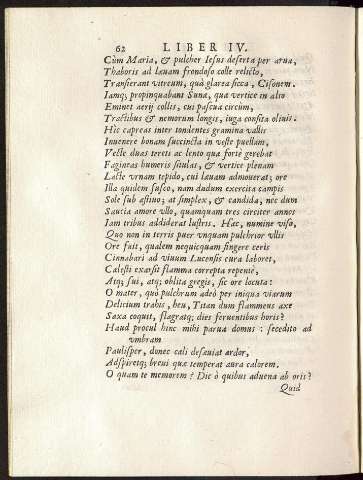 62 LIBER IV.
Cùm Maria, & pulcher Iesus deserta per arua,
Thaboris ad læuam frondoso colle relicto,
Transierant vitreum, quà glarea sicca, Cisonem.
Iamq; propinquabant Sunæ, quæ vertice in alto
Eminet aerij collis, cui pascua circùm,
Tractibus & nemorum longis, iuga consita oliuis.
Hîc capreas inter tondentes gramina vallis
Inuenere bonam succincta in veste puellam,
Vecte duas tereti ac lento quæ fortè gerebat
Fagineas humeris situlas, & vertice plenam
Lacte vrnam tepido, cui læuam admouerat; ore
Illa quidem fusco, nam dudum exercita campis
Sole sub æstiuo; at simplex, & candida, nec dum
Saucia amore vllo, quamquam tres circiter annos
Iam tribus addiderat lustris. Hæc, numine viso,
Quo non in terris puer vnquam pulchrior vllis
Ore fuit, qualem nequicquam fingere ceris
Cinnabari ad viuum Lucensis cura laboret,
Cælesti exarsit flamma correpta repentè,
Atq; sui, atq; oblita gregis, sic ore locuta:
O mater, quò pulchrum adeò per iniqua viarum
Delicium trahis, heu, Titan dum flammeus axe
Saxa coquit, stagratq; dies feruentibus horis?
Haud procul hinc mihi parua domus: secedito ad
vmbram
Paulisper, donec cæli desæuiat ardor,
Adspiretq; breui quæ temperat aura calorem.
O quam te memorem? Dic ô quibus aduena ab oris?
Quid